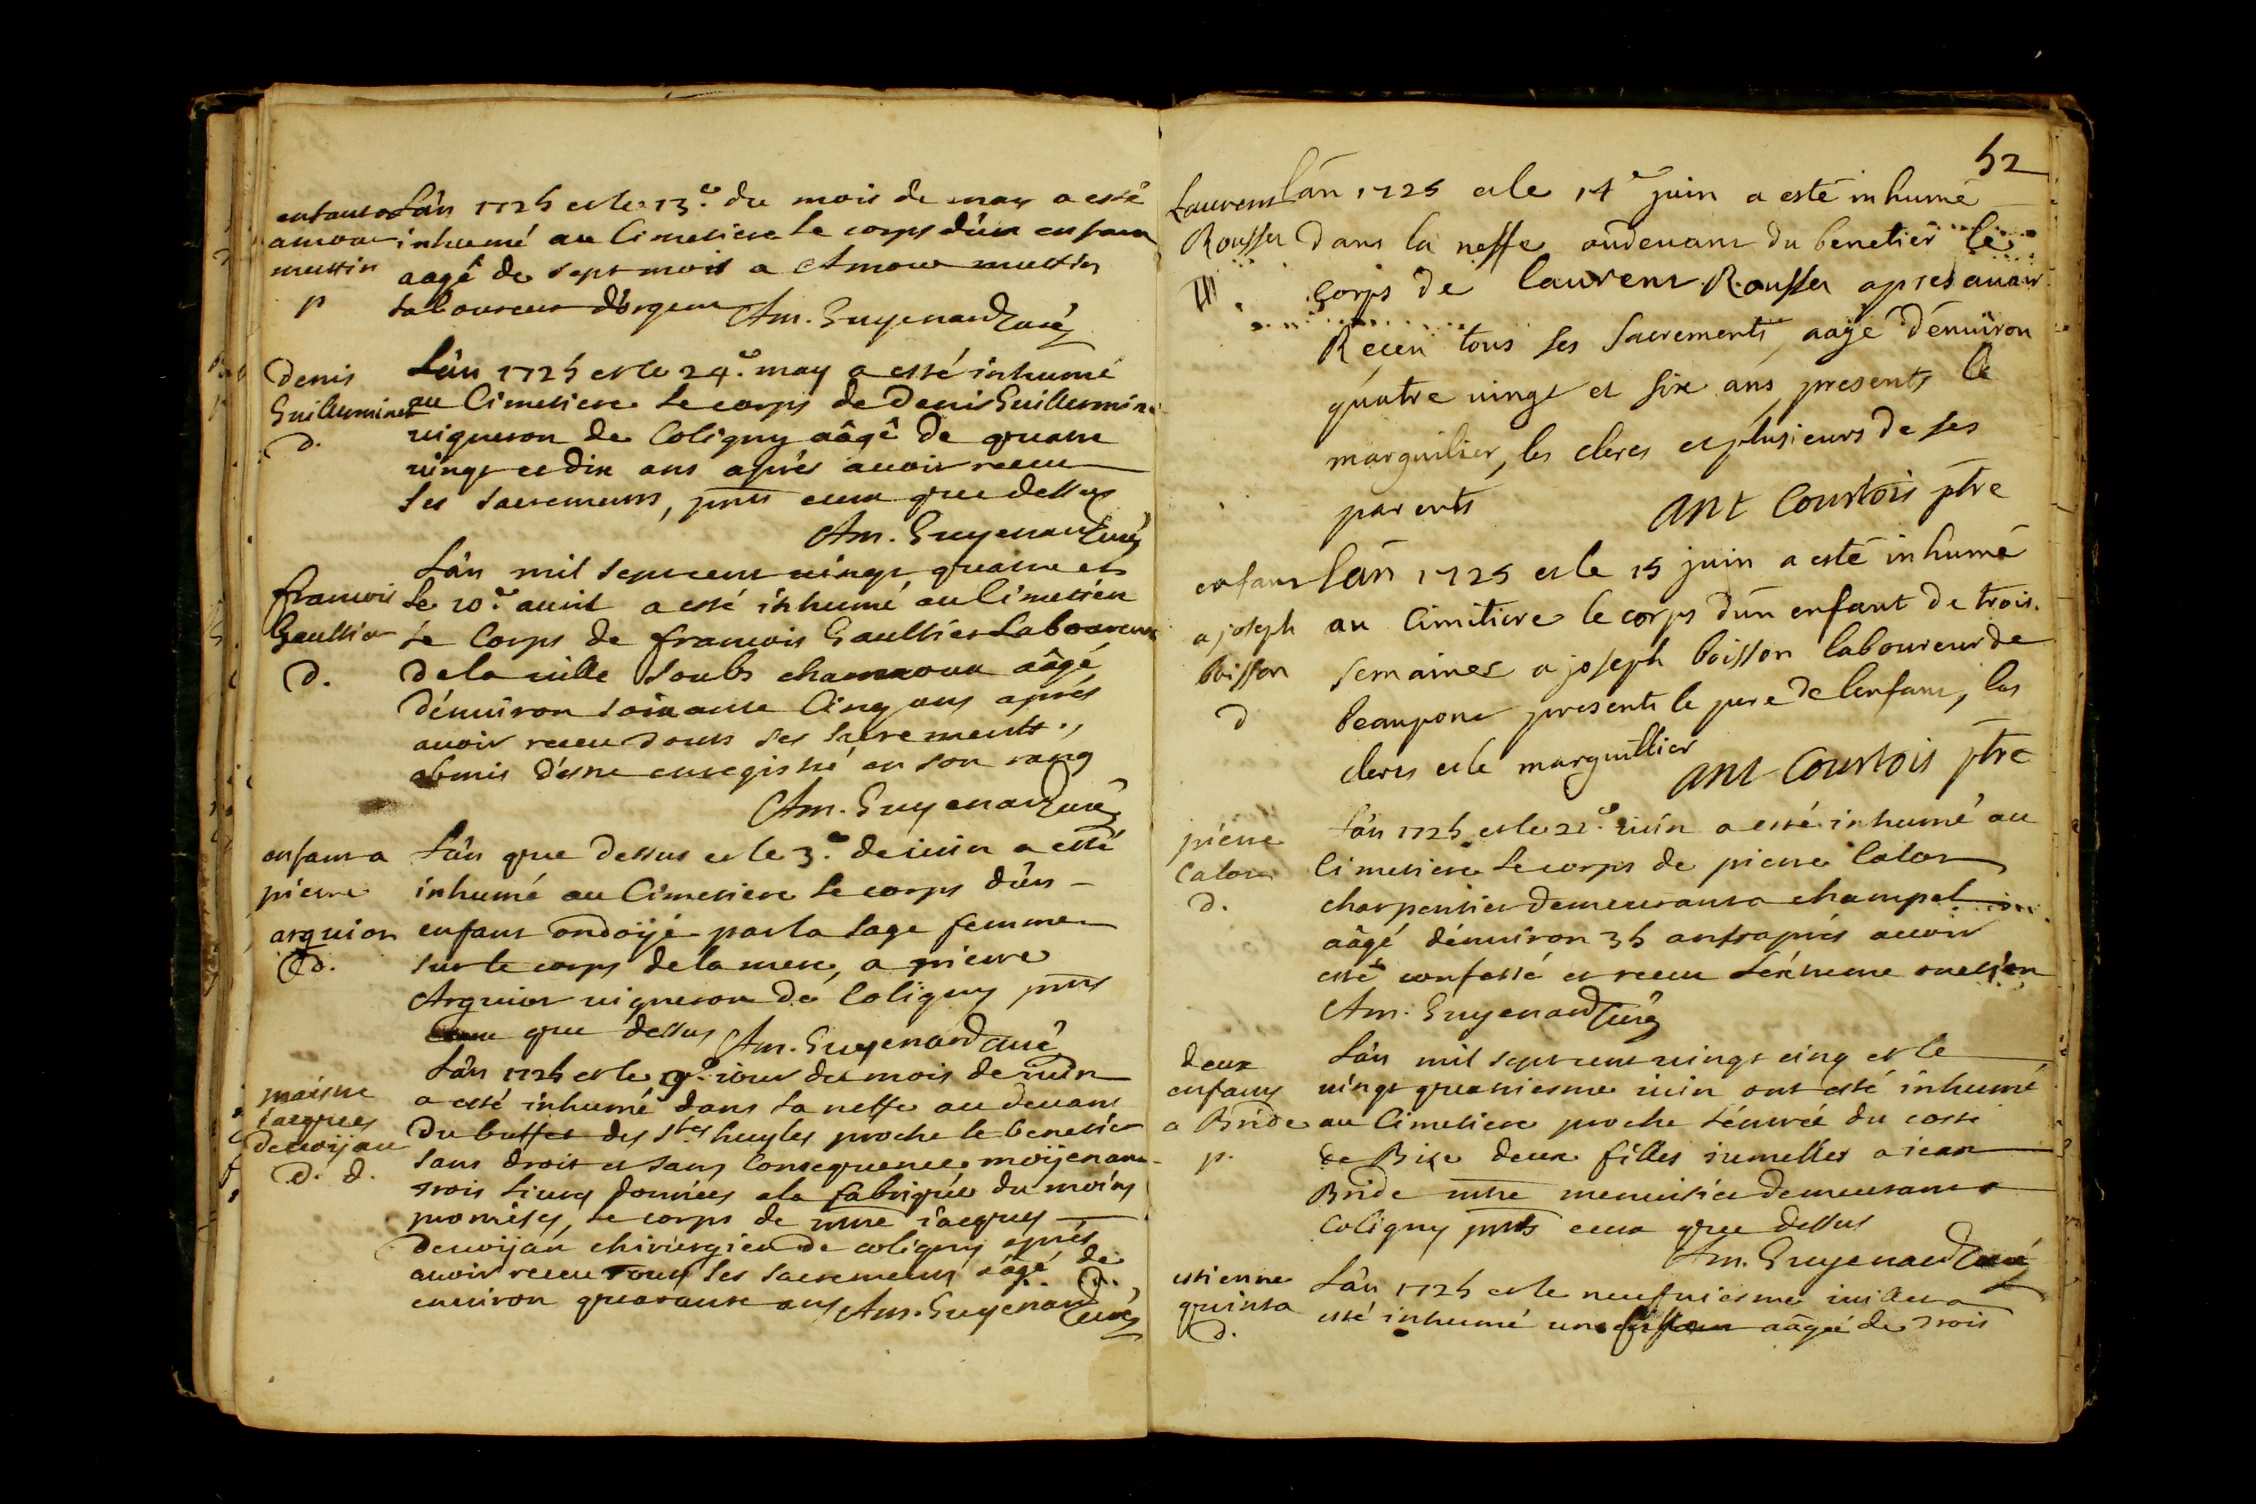 enfant a
amour
mustin
p
L'an 1725 et le 13.e du mois de may a esté
inhumé au Cimetiere le corps d'un enfant
aagé de sept mois a Amour mustin
Laboureur d'orgent Am. Guyenard curé
Denis
Guillerminet
d.
L'an 1725 et le 24.e may a esté inhumé
au Cimetiere le corps de Denis Guillerminet
vigneron de Coligny aâgé de quatre
vingt et dix ans aprés auoir receu
ses sacrements, pnts ceux que dessus
Am. Guyenard curé
francois
Gaultier
d.
L'an mil sept cent vingt quatre et
le 20.e auril a esté inhumé au Cimetiére
le Corps de francois Gaultier Laboureur
de la ville soubs aâgé
d'enuiron soixante Cinq ans aprés
auoir receu touts ses sacrements,
obmis d'estre enregistré en son rang
Am. Guyenard curé
enfant a
pierre
arquion
d.
L'an que dessus et le 3.e de iuin a esté
inhumé au Cimetiere le corps d'un
enfant ondoÿé par la sage femme
sur le corps de la mere, a pierre
Arguion vigneron de Coligny pnts
ceux que dessus Am. Guyenard curé
maistre
iacques
d. d.
L'an 1725 et le 9.e iour du mois de iuin
a esté inhumé dans la neffe au deuant
du buffet des stes huyles proche le benetier
sans droit et sans Consequence moÿenant
trois liures données a la fabrique du moins
promises, le corps de mtre iacques
chirurgien de coligny aprés
auoir receu tous ses sacrements aâgé de
enuiron quarante ans Am. Guyenard curé
52
Laurent
Rousset
L'an 1725 et le 14e juin a esté inhumé
dans la neffe audeuant du benetier le
corps de laurent Rousset apres auoir
Receu tous ses sacrements, aagé d'enuiron
quatre vingt et six ans, presents le
marguilier, les clercs et plusieurs de ses
parents
ant Courtois ptre
enfant
a joseph
boisson
d
L'an 1725 et le 15 juin a esté inhumé
au Cimitiere le corps d'un enfant de trois
semaines a joseph boisson laboureur de
beaupont presents le pere de lenfant, les
clercs et le marguillier
ant Courtois ptre
pierre
Caton
d.
L'an 1725 et le 22.e iuin a esté inhumé au
Cimetiere le corps de pierre Caton
charpentier demeurant a champel
aâgé d'enuiron 35 ans aprés auoir
esté confessé et receu l'extreme onction
Am. Guyenard curé
deux
enfants
a Bride
p.
L'an mil sept cent vingt cinq et le
vingt quatriesme iuin ont esté inhumé
au Cimetiere proche l'entrée du costé
de Bise deux filles iumelles a iean
Bride mtre menuisier demeurant a
Coligny pnts ceux que dessus
Am. Guyenard curé
estienne
quinsa
d.
L'an 1725 et le neufuiesme iuillet a
esté inhumé un enfant aâgé de trois